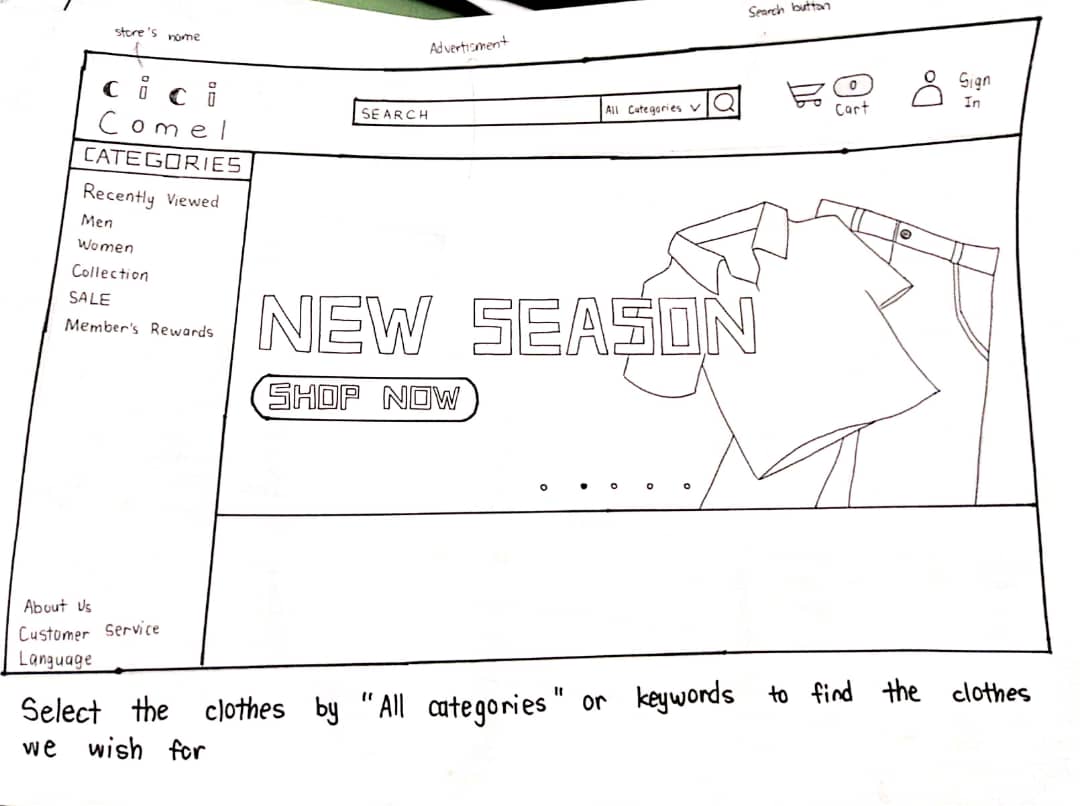 Search button
store's name
Advertisment
cici
Comel
SEARCH
All Categories
0
Cart
Sign
In
CATEGORIES
Recently Viewed
Men
Women
Collection
SALE
Member's Rewards
NEW SEASON
SHOP NOW
About Us
Customer Service
Language
Select the clothes by "All categories" or keywords to find the clothes
we wish for